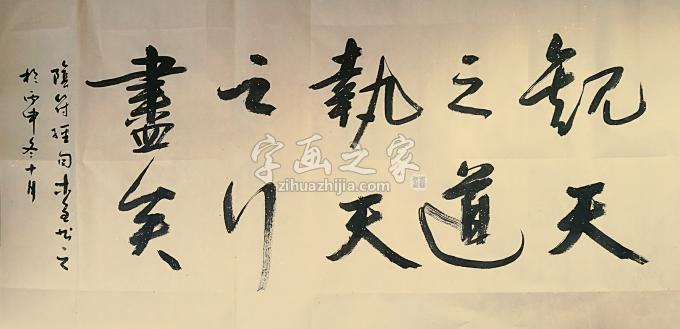 觀天
之道
執天
之行
盡矣
陰符經句书之
於丙申冬十月
字画之家
zihuazhijia.com